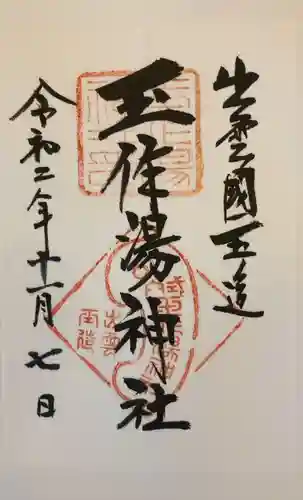 出雲國玉造
玉作湯神社
令和二年十一月七日
出雲
玉造